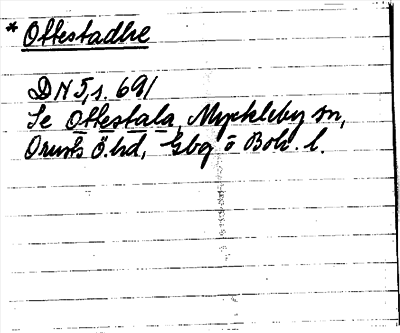 * Ottestadhe
DN 5, s. 691
Se Ottestala, Myckleby sn,
Orusts Ö. hd, Gbg o Boh. l.